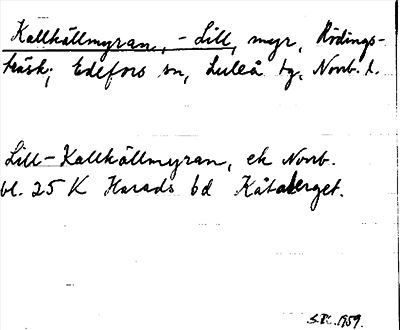 Kallkällmyran, - Lill, myr, Rödings-
träsk; Edefors sn, Luleå tg, Norrb. l.
Lill-Kallkällmyran, ek Norrb.
bl. 25 K Harads bd Kåtaberget.
1959.